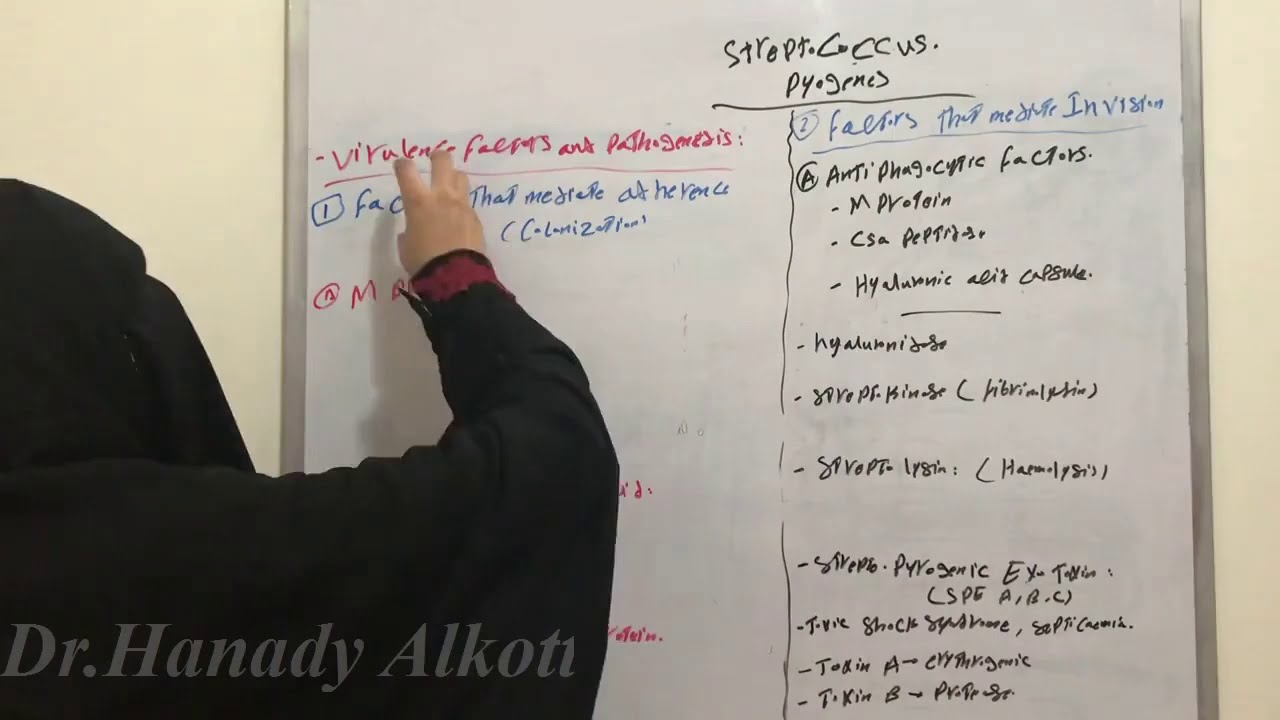 Streptococcus.
Pyogenes
- Virulence factors and Pathogenesis:
1 Fac That mediate adherence
(Colonization)
A M
uid:
rotein.
2 Factors That mediate Invision
A Antiphagocytic factors.
- M Protein
- C5a Peptidase
- Hyaluronic acid capsule.
- hyaluronidase
- Streptokinase (fibrinolysin)
- Streptolysin: (Haemolysis)
- Strepto. Pyrogenic Exotoxin:
(SPE A, B, C)
- Toxic shock syndrome, septicaemia.
- Toxin A → erythrogenic
- Toxin B → Protease.
Dr.Hanady Alkott